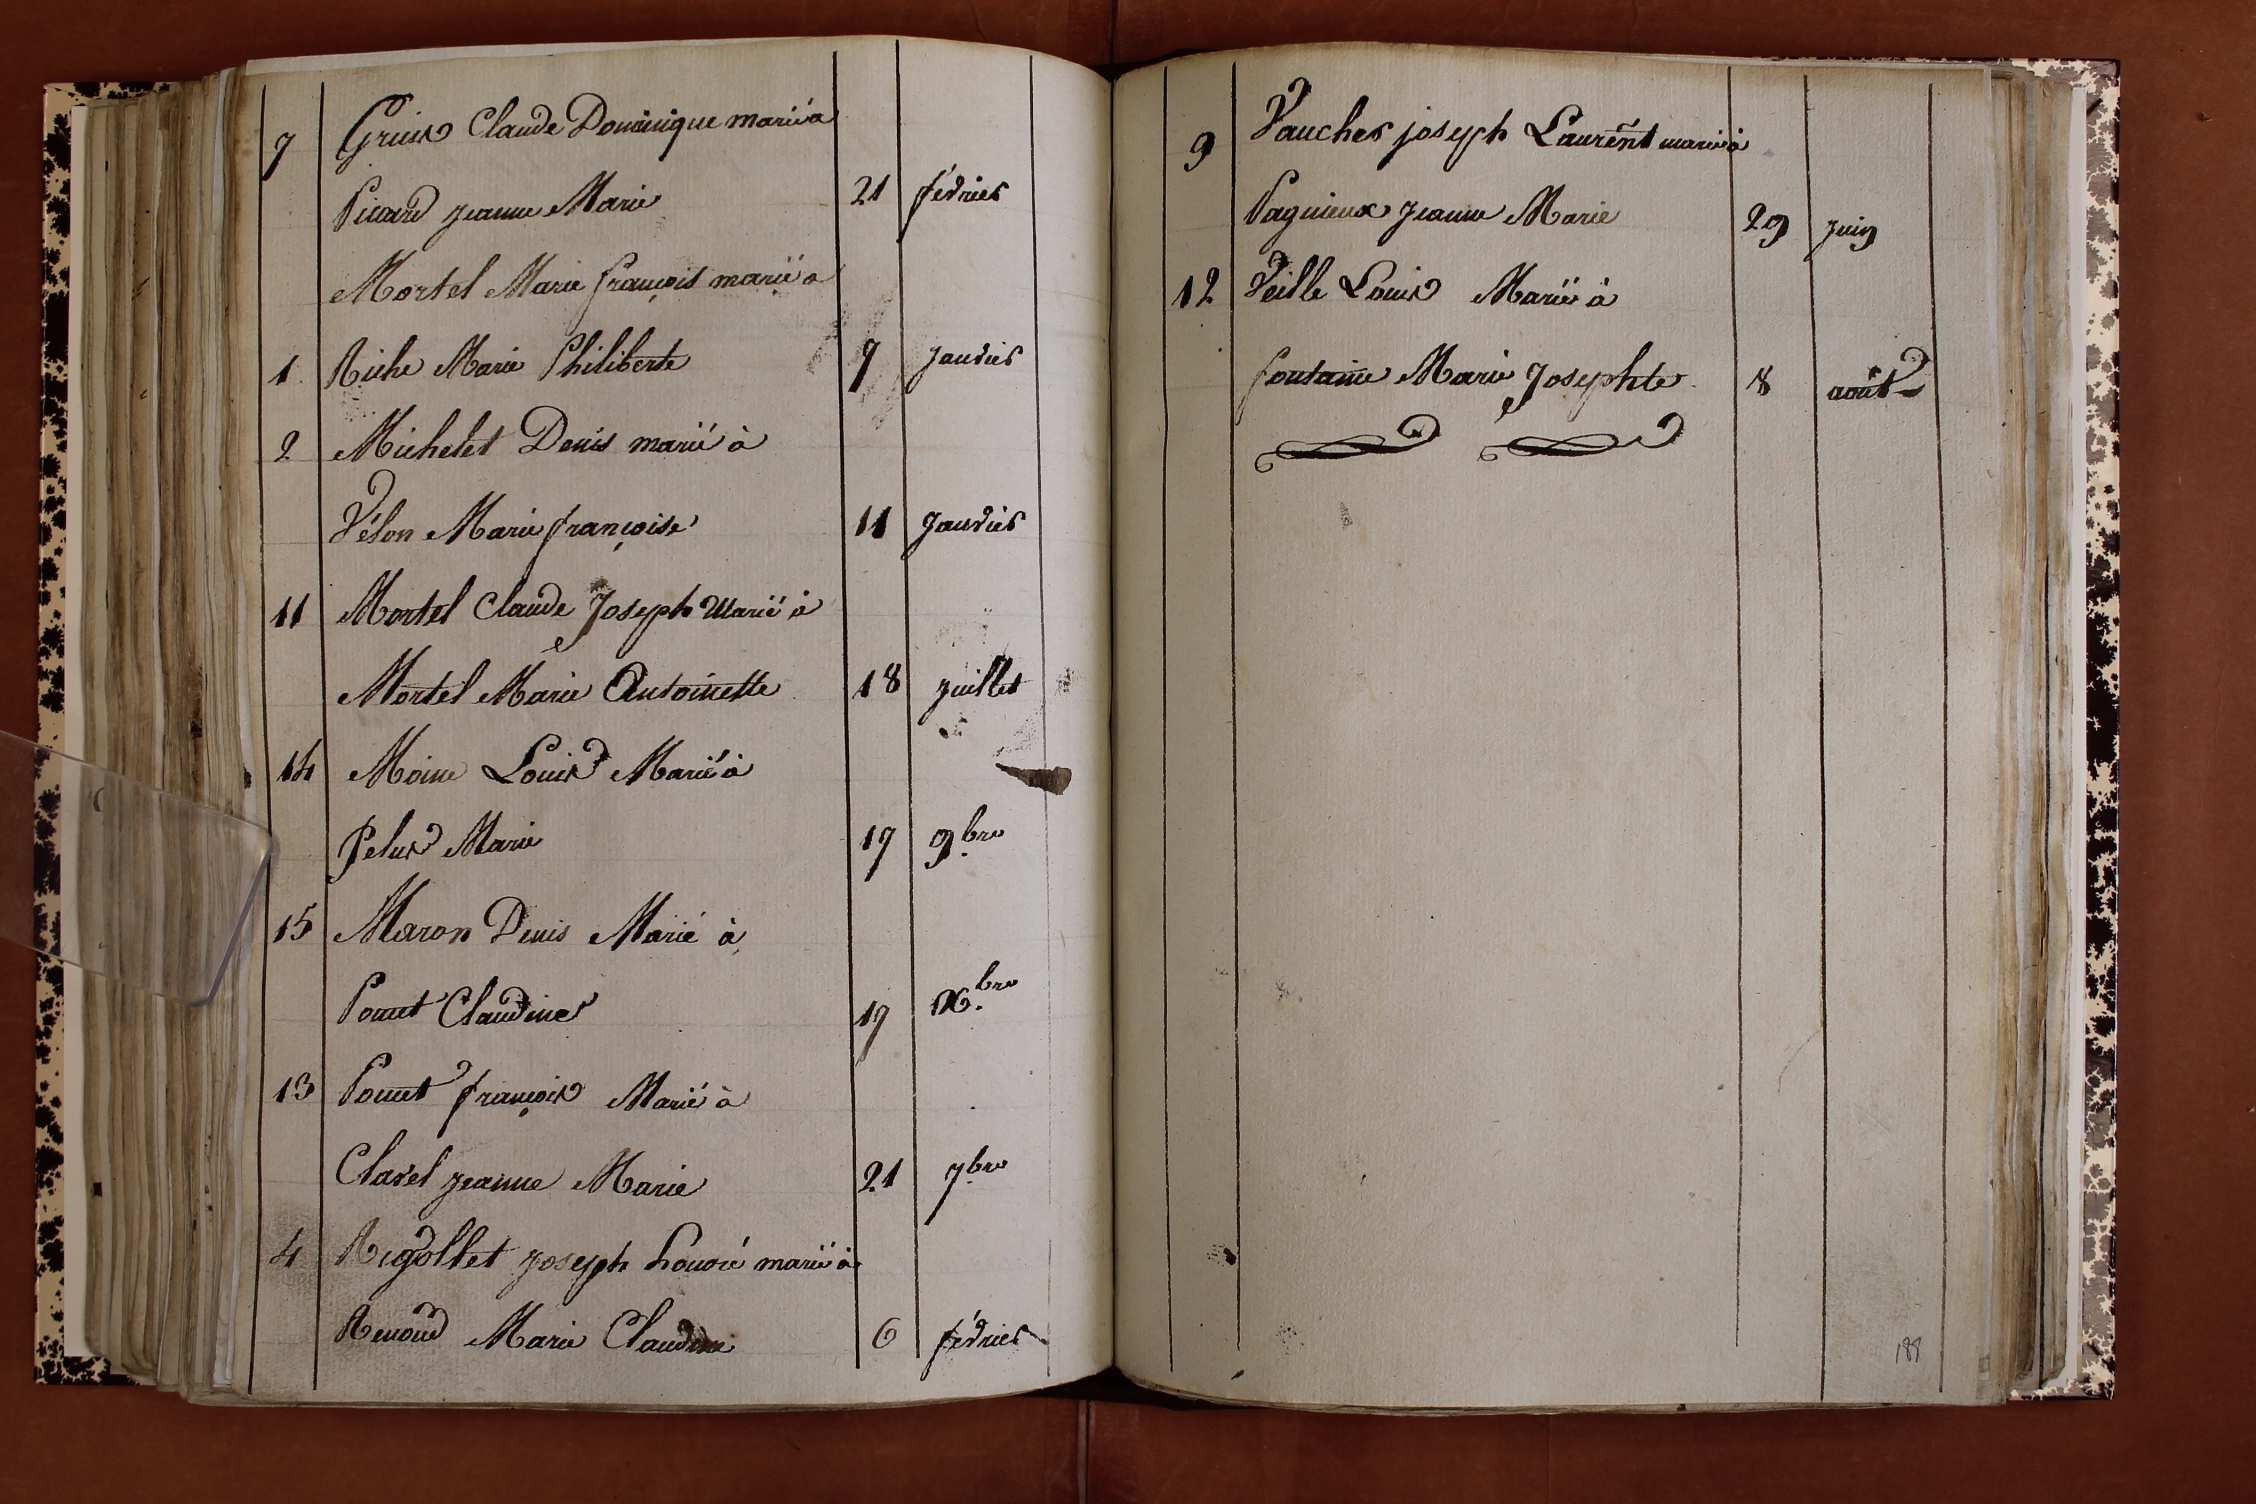 7 Gruix Claude Dominique marié à
Picard jeanne Marie 21 février
Mortel Marie françois marié à
1 Riche Marie Philiberte 7 janvier
2 Michelet Denis marié à
Vélon Marie françoise 11 janvier
11 Mortel Claude Joseph Marié à
Mortel Marie Antoinette 18 juillet
14 Moine Louis Marié à
Pelux Marie 17 9.bre
15 Maron Denis Marié à
Ponnet Claudine 17 X.bre
13 Ponnet françois Marié à
Clavel jeanne Marie 21 7.bre
4 Rigollet joseph honoré marié à
Renoud Marie Claudine 6 février
9 Vaucher joseph Laurent marié à
Paguieux jeanne Marie 29 juin
12 Veille Louis Marié à
fontaine Marie Josephte 18 août
188